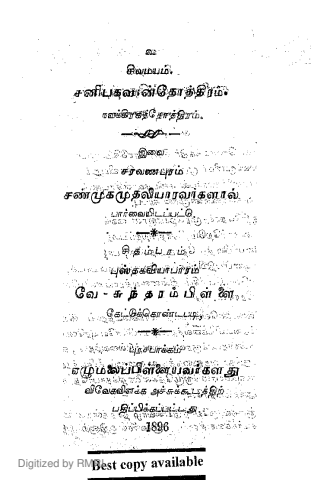 உ
சிவமயம்.
சனிபகவான்தோத்திரம்.
நவக்கிரகத்தோத்திரம்.
இவை
சரவணபுரம்
சண்முகமுதலியாரவர்களால்
பார்வையிடப்பட்டு
சிதம்பரம்
புஸ்தகவியாபாரம்
வே - சுந்தரம்பிள்ளை
கேட்டுக்கொண்டபடி,
புரசபாக்கம்
ஏழுமலைப்பிள்ளையவர்களது
விவேகவிளக்க அச்சுக்கூடத்திற்
பதிப்பிக்கப்பட்டது
1896
Digitized by
Best copy available